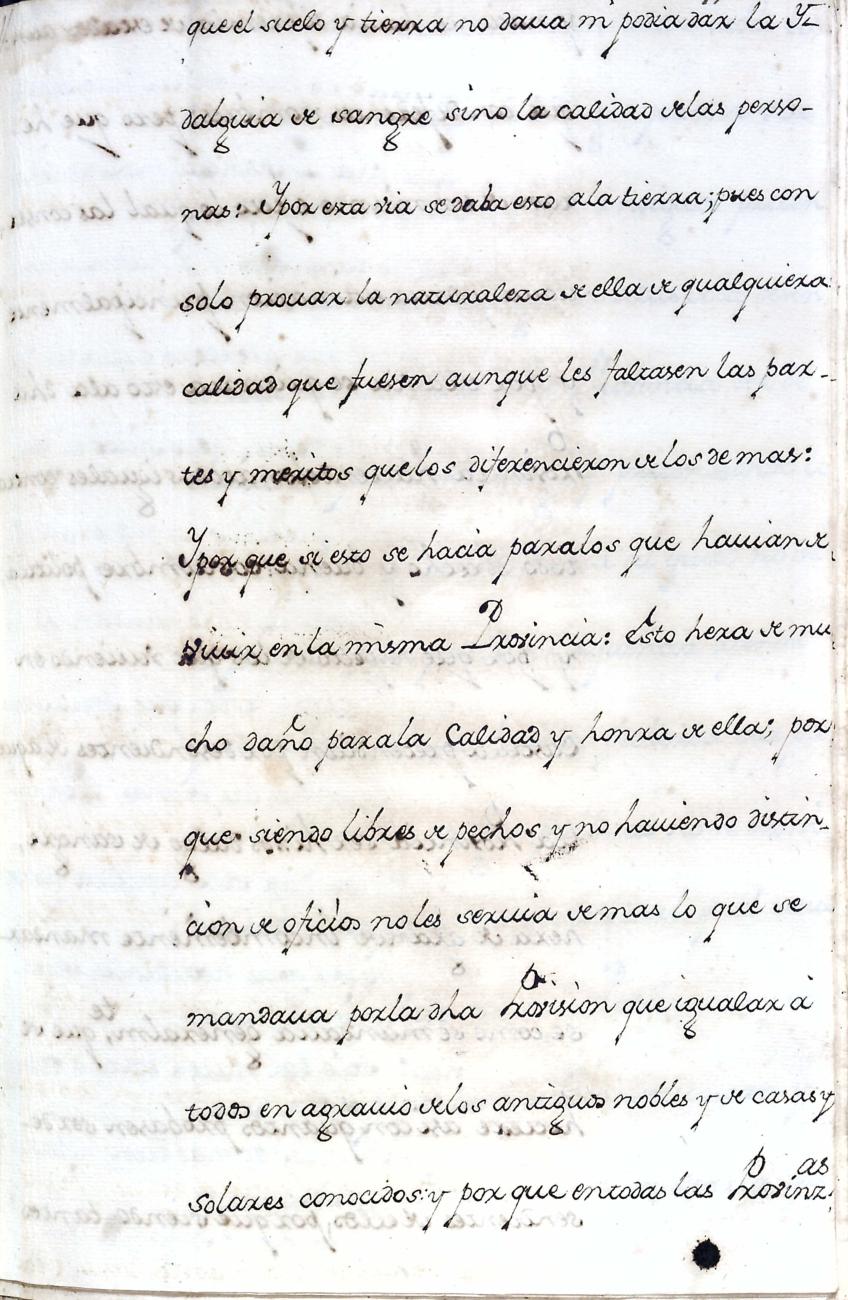 que el suelo y tierra no daua ni podia dar la Y-
dalguia de sangre sino la calidad de las perso-
nas: Y por esta via se daba esto a la tierra; pues con
solo prouar la naturaleza de ella de qualquiera
calidad que fuesen aunque les faltasen las par-
tes y meritos que los diferencieron de los demas:
Y por que si esto se hacia para los que hauian de
viuir en la misma Provincia: Esto hera de mu
cho daño para la Calidad y honra de ella; por
que siendo libres de pechos y no hauiendo distin-
cion de oficios no les seruia de mas lo que se
mandaua por la dha Provision que igualar à
todos en agrauio de los antiguos nobles y de casas y
solares conocidos: y por que en todas las Provinzas